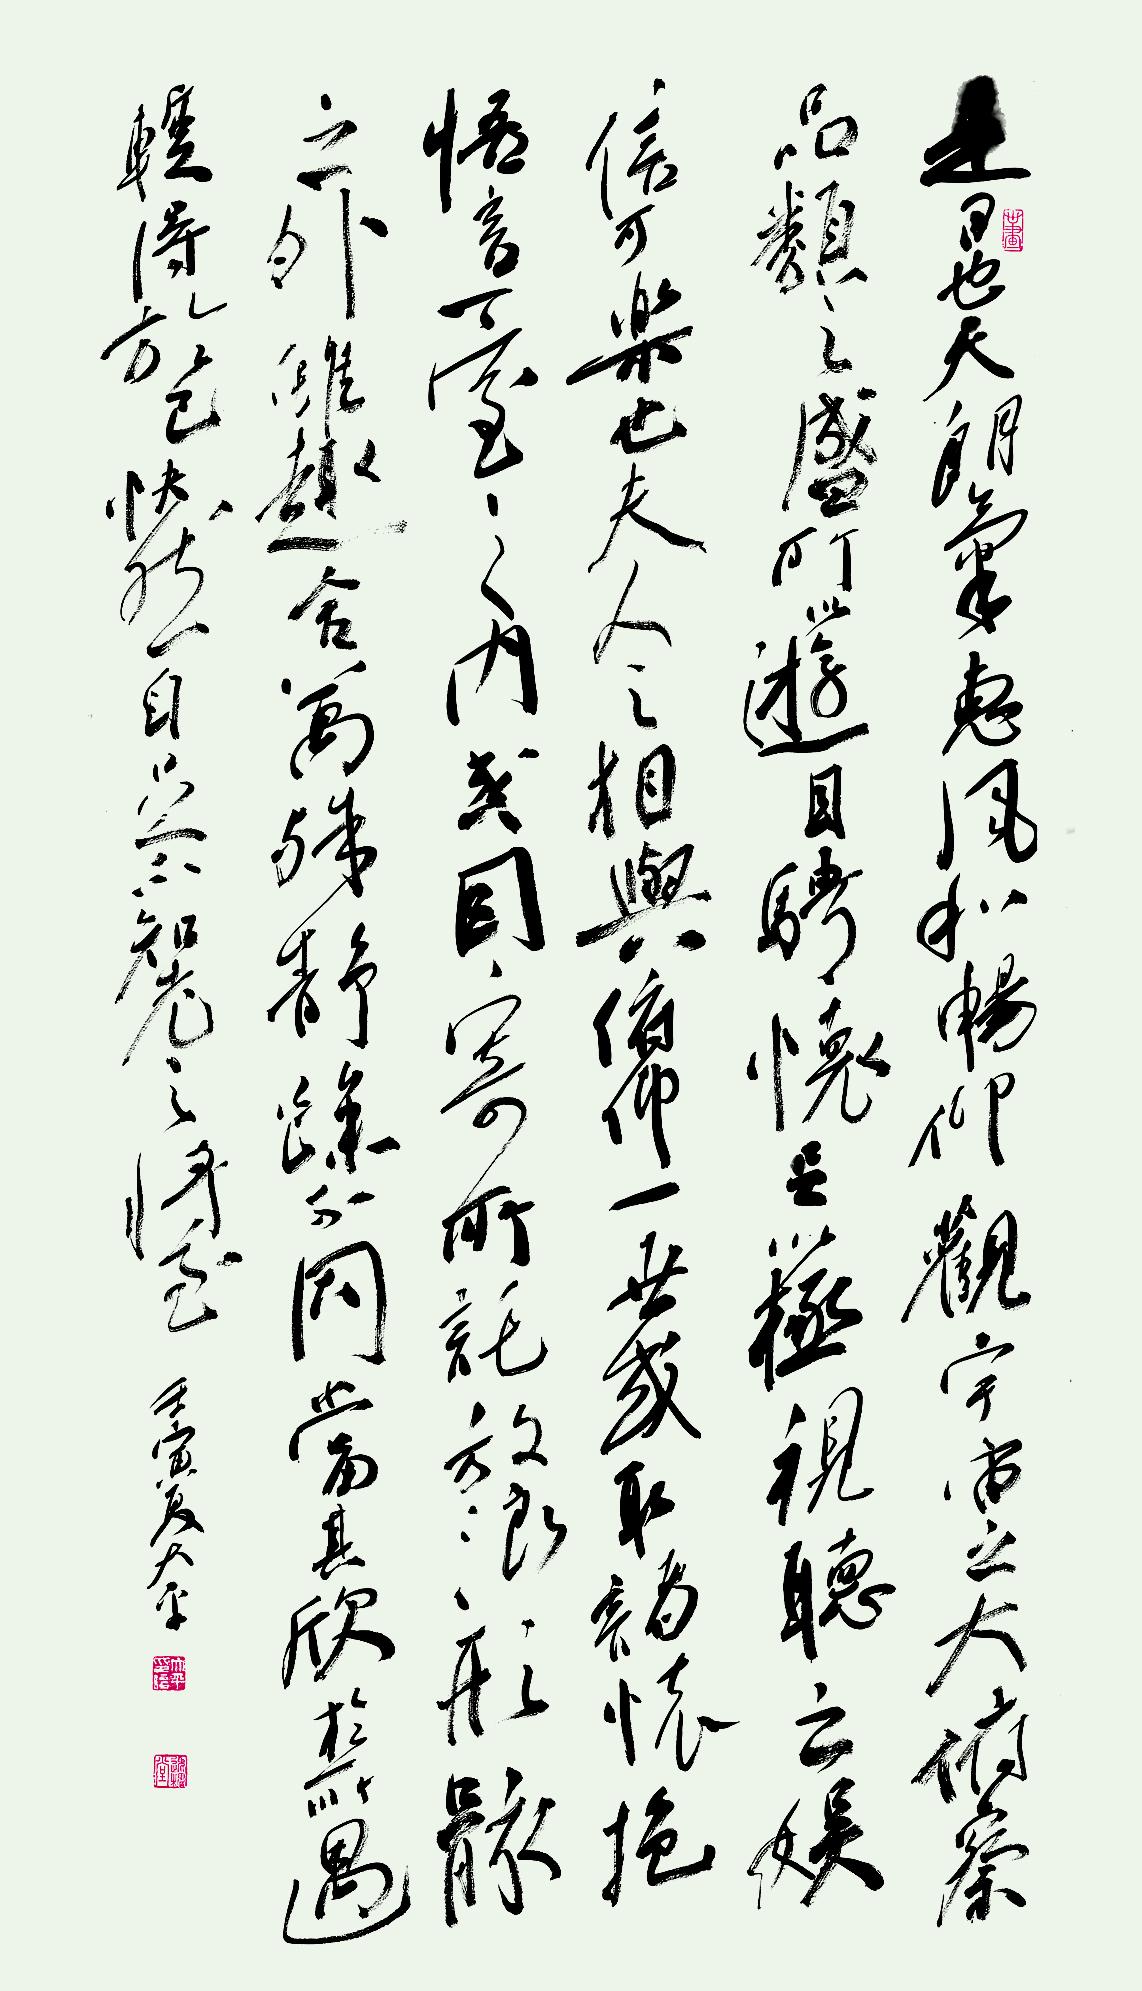 是日也天朗氣惠風和暢仰觀宇宙之大俯察
品類之盛所以遊目騁懷足以極視聽之娛
信可樂也夫人之相與俯仰一世或取諸懷抱
悟言一室之內或因寄所託放浪形骸
之外雖趣舍萬殊靜躁不同當其欣於所遇
蹔得於己快然自足不知老之將至
壬寅夏大平